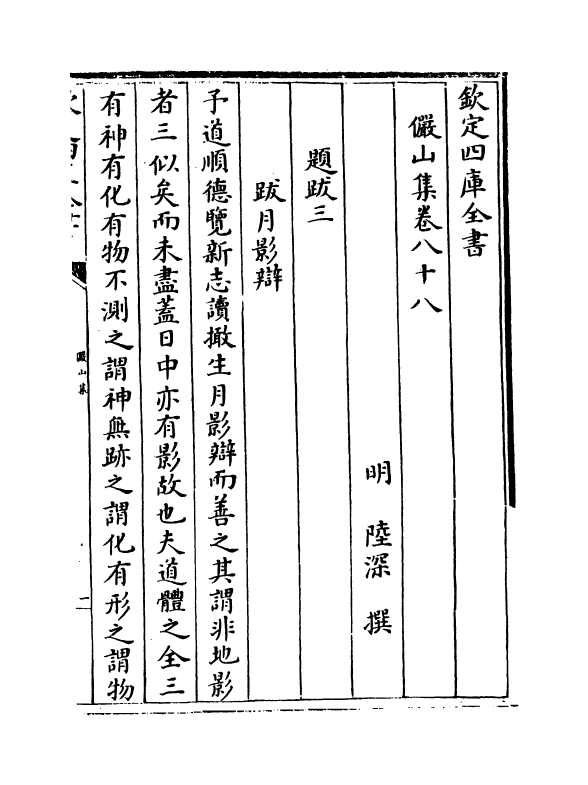 欽定四庫全書
儼山集卷八十八
明　陸深　撰
題跋三
跋月影辯
予道順德覽新志讀撖生月影辯而善之其謂非地影
者三似矣而未盡蓋日中亦有影故也夫道體之全三
有神有化有物不測之謂神無跡之謂化有形之謂物
儼山集
二